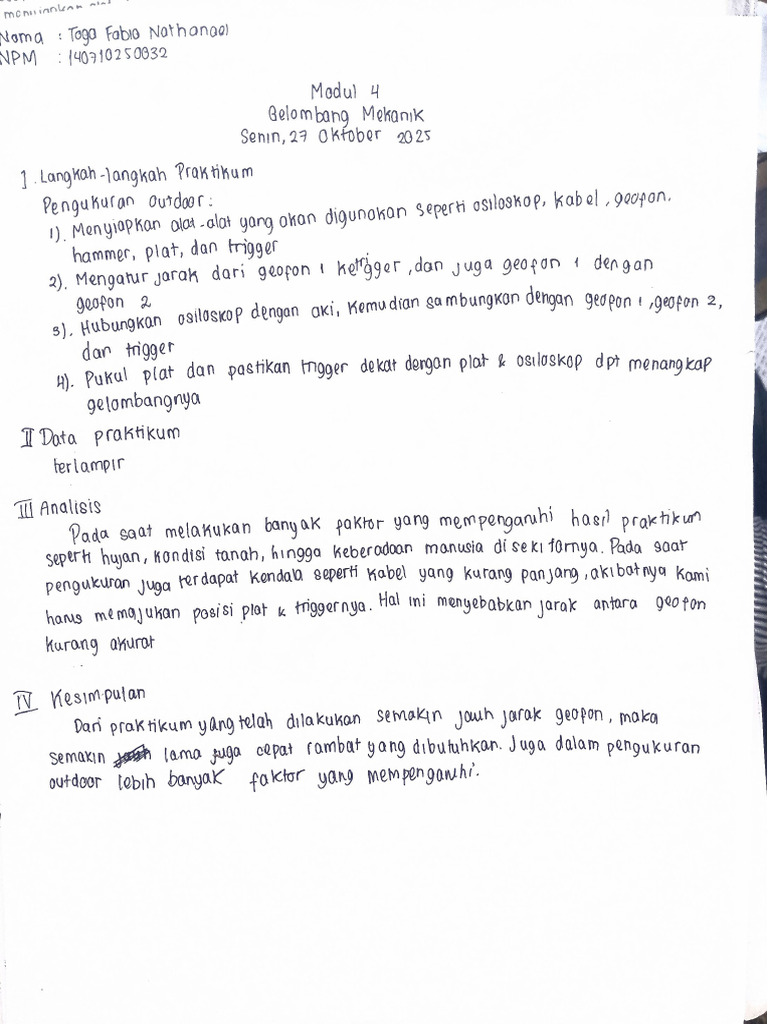 Nama : Toga Fabio Nathanael
NPM : 140710250032
Modul 4
Gelombang Mekanik
Senin, 27 Oktober 2025
I. Langkah-langkah Praktikum
Pengukuran Outdoor :
1). Menyiapkan alat-alat yang akan digunakan seperti osiloskop, kabel, geofon.
hammer, plat, dan trigger
2). Mengatur jarak dari geofon 1 ke trigger, dan juga geofon 1 dengan
geofon 2
3). Hubungkan osiloskop dengan aki, kemudian sambungkan dengan geofon 1, geofon 2,
dan trigger
4). Pukul plat dan pastikan trigger dekat dengan plat & osiloskop dpt menangkap
gelombangnya
II Data praktikum
terlampir
III Analisis
Pada saat melakukan banyak faktor yang mempengaruhi hasil praktikum
seperti hujan, kondisi tanah, hingga keberadaan manusia di sekitarnya. Pada saat
pengukuran juga terdapat kendala seperti kabel yang kurang panjang, akibatnya kami
harus memajukan posisi plat & triggernya. Hal ini menyebabkan jarak antara geofon
kurang akurat
IV Kesimpulan
Dari praktikum yang telah dilakukan semakin jauh jarak geofon, maka
semakin lama juga cepat rambat yang dibutuhkan. Juga dalam pengukuran
outdoor lebih banyak faktor yang mempengaruhi.